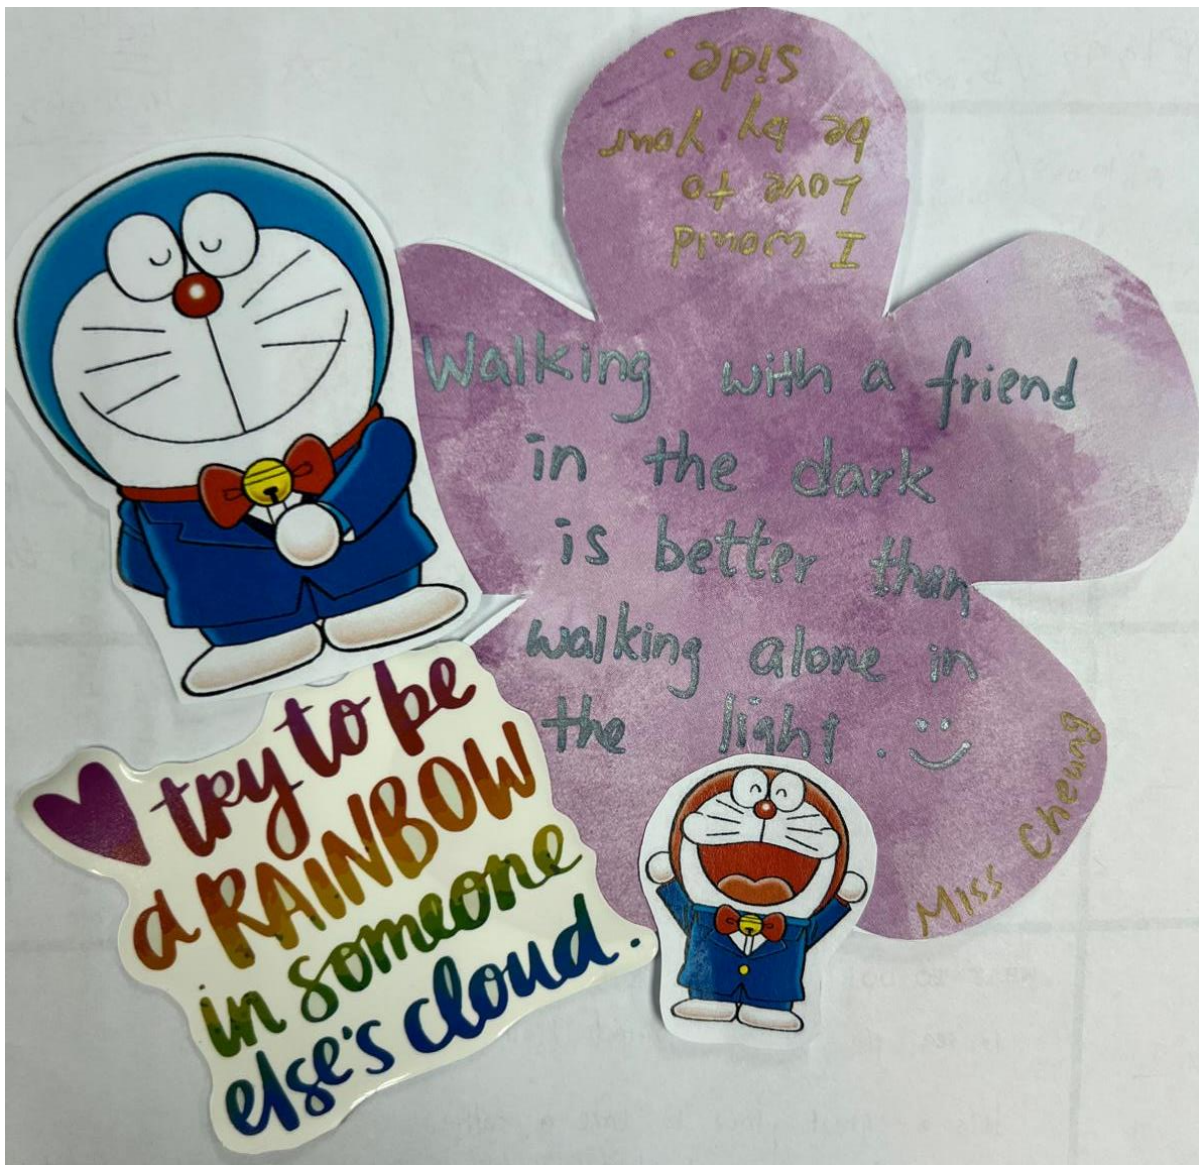 I would
love to
be by your
side.
Walking with a friend
in the dark
is better than
walking alone in
the light. :)
Miss Cheung
try to be
a RAINBOW
in someone
else's cloud.